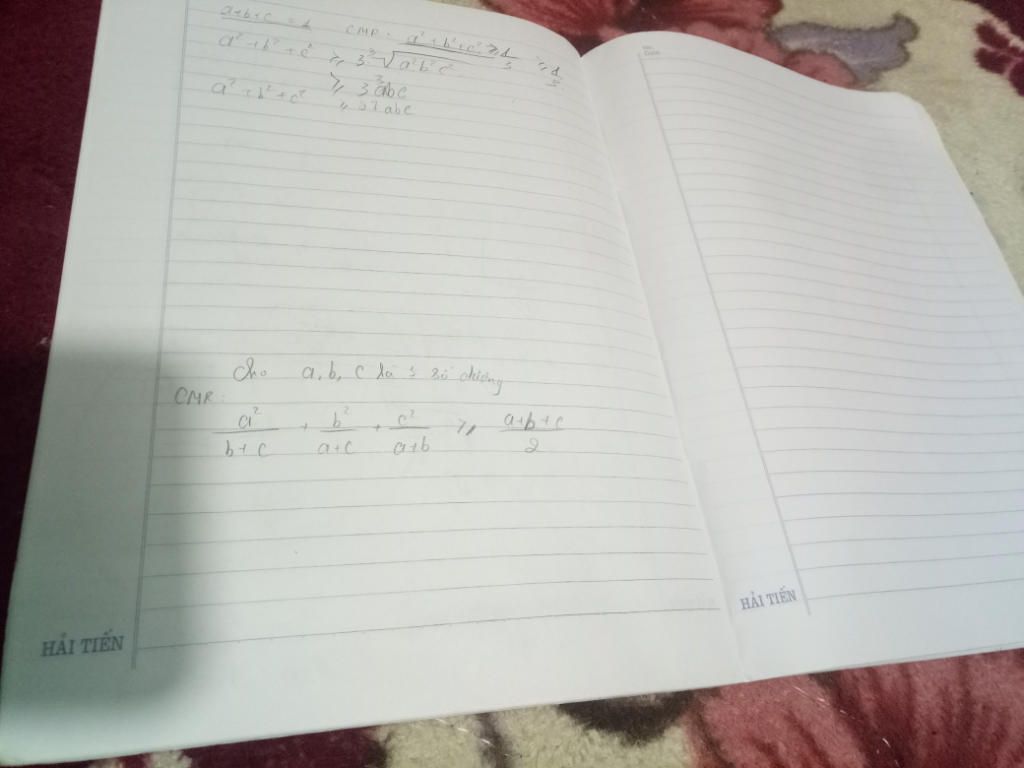 a+b+c = 1 CMR: a² + b² + c² ≥ 1/3 ≥ 1/3
a² + b² + c² ≥ 3 ∛(a²b²c²)
a² + b² + c² ≥ 3 abc
abc
Cho a, b, c là 3 số dương
CMR:
a²/(b+c) + b²/(a+c) + c²/(a+b) ≥ (a+b+c)/2
HẢI TIẾN
HẢI TIẾN